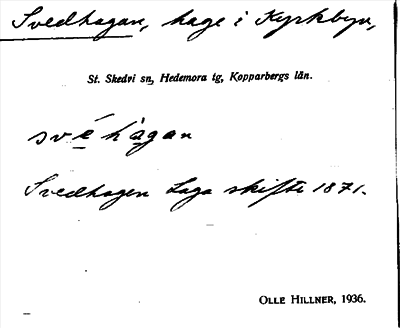 Svedhagan, hage i Kyrkbyn,
St. Skedvi sn, Hedemora tg, Kopparbergs län.
svéhàgan
Svedhagen Laga skifte 1871.
OLLE HILLNER, 1936.